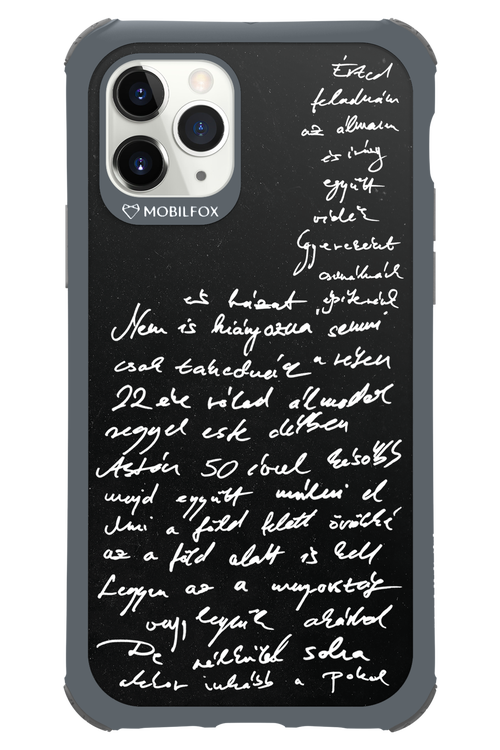 MOBILFOX
Érted
feladnám
az álmaim
és így
együtt
vidék
Gyereket
csinálnánk
és házat építenénk
Nem is hiányozna semmi
csak takednánk a resen
22 éve rólad álmodok
reggel este délben
Aztán 50 évvel később
majd együtt múlni el
Ami a föld felett örökké
az a föld alatt is kell
Legyen az a mennyország
vagy legyünk akárhol
De nélküled soha
akkor inkább a pokol